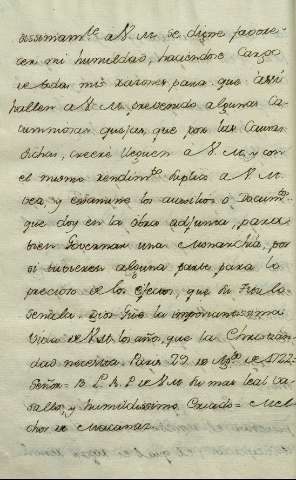 a V. M. se digne favore-
cer mi humildad, haciendose Cargo
de todas mis razones para que assi
hallen a V. M. prevenido algunas ca-
lumniosas quejas, que por las Causas
dichas, creeré lleguen a V. M. y con
el mismo rendimto. suplico a V. M.
vea, y examine los auxilios o Documtos.
que doy en la obra adjunta, para
bien Governar una Monarchia, por
si tuvieren alguna parte para lo
preciso de los efectos, que
señala. Dios gue. la importantissima
Vida de V. M. los años, que la Christian-
dad necesita. Paris 29 de de 1722
Señor = B. L. R. P. de V. M. su mas leal Va-
sallo, y humildissimo Criado = Mel-
chor de Macanaz